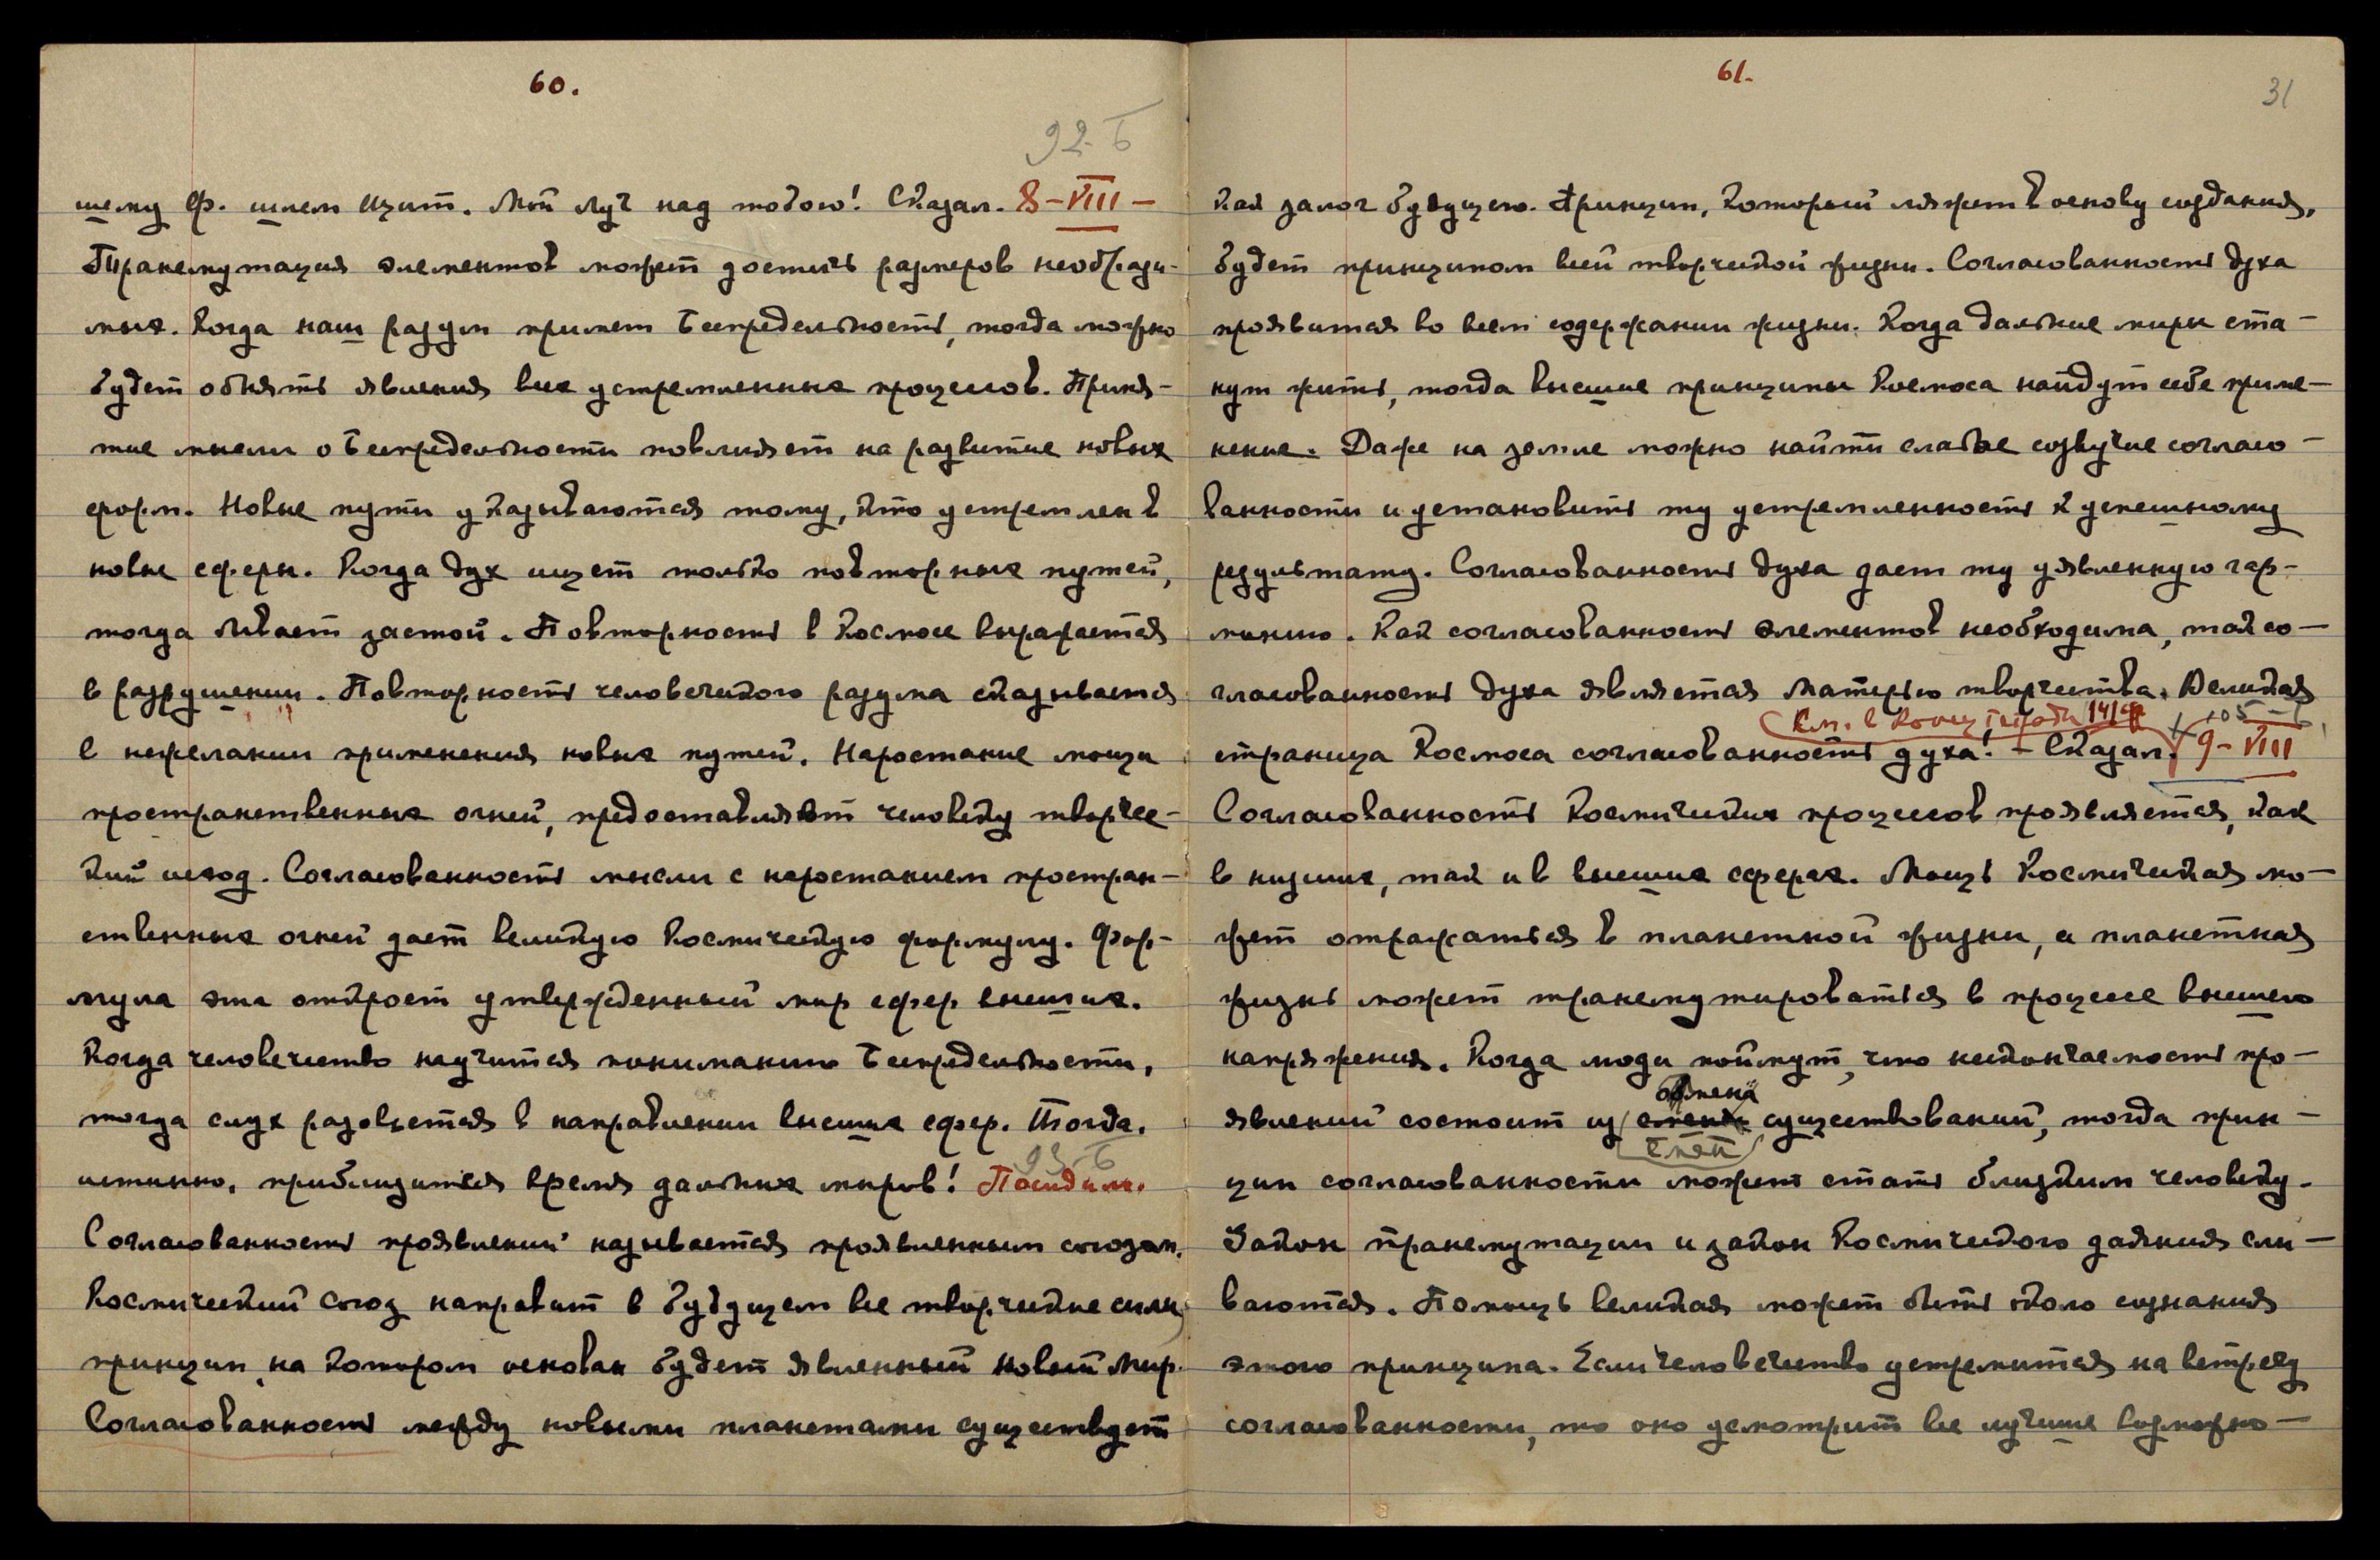 60.
92. Б
шему Ф. шлем щит. Мой луч над тобою! Сказал. 8-VIII-
Трансмутация элементов может достичь размеров необрази-
мых. Когда наш разум примет Беспредельность, тогда можно
будет объять явления всех устремленных процессов. Приня-
тие мысли о Беспредельности повлияет на развитие новых
форм. Новые пути указываются тому, кто устремлен в
новые сферы. Когда дух ищет только повторных путей,
тогда бывает застой. Повторность в Космосе выражается
в разрушении. Повторность человеческого разума сказывается
в нежелании применения новых путей. Наростание мощи
пространственных огней, предоставляет человеку творчес-
кий исход. Согласованность мысли с наростанием простран-
ственных огней дает великую Космическую формулу. Фор-
мула эта откроет утвержденный мир сфер высших.
Когда человечество научится пониманию Беспредельности,
тогда слух разовьется в направлении высших сфер. Тогда,
истинно, приблизится время дальних миров! Посидим.
93-Б
Согласованность проявлений называется проявленным союзом.
Космический союз направит в будущем все творческие силы,
принцип, на котором основан будет явленный новый Мир.
Согласованность между новыми планетами существует
61.
31
как залог будущего. Принцип, который ляжет в основу создания,
будет принципом всей творческой жизни. Согласованность духа
проявится во всем содержании жизни. Когда дальние миры ста-
нут жить, тогда высшие принципы Космоса найдут себе приме-
нение. Даже на земле можно найти слабое созвучие согласо-
ванности и установить ту устремленность к успешному
результату. Согласованность духа дает ту уявленную гар-
монию. Как согласованность элементов необходима, так со-
гласованность духа является Матерью творчества. Великая
См. в конце тетради 141 105-Б
страница Космоса согласованность духа! - Сказал. 9-VIII
Согласованность Космических процессов проявляется, как
в низших, так и в высших сферах. Мощь Космическая мо-
жет отражаться в планетной жизни, и планетная
жизнь может трансмутироваться в процессе высшего
напряжения. Когда люди поймут, что нескончаемость про-
обмена
явлений состоит из смены существований, тогда прин-
смен
цип согласованности может стать близким человеку.
Закон трансмутации и закон Космического даяния сли-
ваются. Помощь великая может быть около сознания
этого принципа. Если человечество устремится на встречу
согласованности, то оно усмотрит все лучшие возможно-